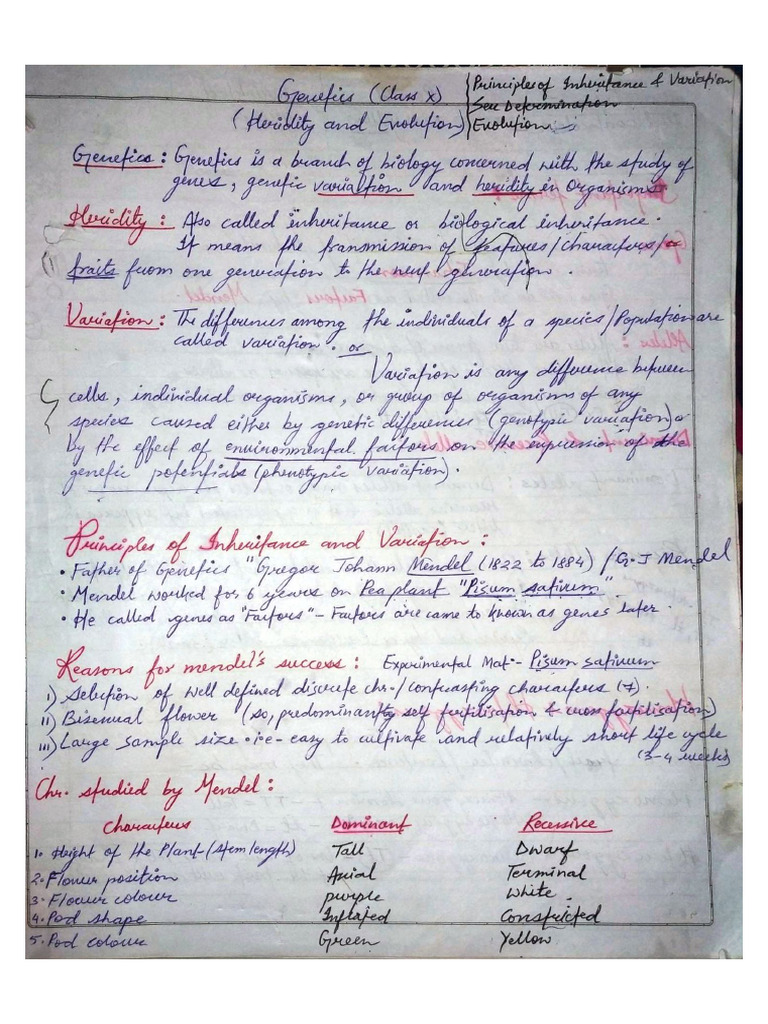 Genetics (Class X)
Principles of Inheritance & Variation
Sex Determination
(Heridity and Evolution) Evolution
Genetics: Genetics is a branch of biology concerned with the study of
genes, genetic variation and heridity in Organisms
Heridity: Also called inheritance or biological inheritance.
It means the transmission of features/characters/
traits from one generation to the next generation.
Variation: The differences among the individuals of a species/Population are
called variation. or
Variation is any difference between
cells, individual organisms, or group of organisms of any
species caused either by genetic differences (genotypic variation) or
by the effect of environmental factors on the expression of the
genetic potentials (phenotypic variation).
Principles of Inheritance and Variation:
• Father of Genetics "Gregor Johann Mendel (1822 to 1884) / G.J Mendel
• Mendel worked for 6 years on Pea plant "Pisum sativum".
• He called genes as "Factors" - Factors are came to known as genes later.
Reasons for mendel's success: Experimental Mat:- Pisum sativum
i) Selection of well defined discrete chr./contrasting characters (7).
ii) Bisexual flower (so, predominantly self fertilisation & cross fertilisation)
iii) Large sample size. i.e- easy to cultivate and relatively short life cycle
(3-4 weeks)
Chr. studied by Mendel:
Characters Dominant Recessive
1. Height of the Plant-(stem length) Tall Dwarf
2. Flower position Axial Terminal
3. Flower colour purple White.
4. Pod shape Inflated Constricted
5. Pod colour Green Yellow